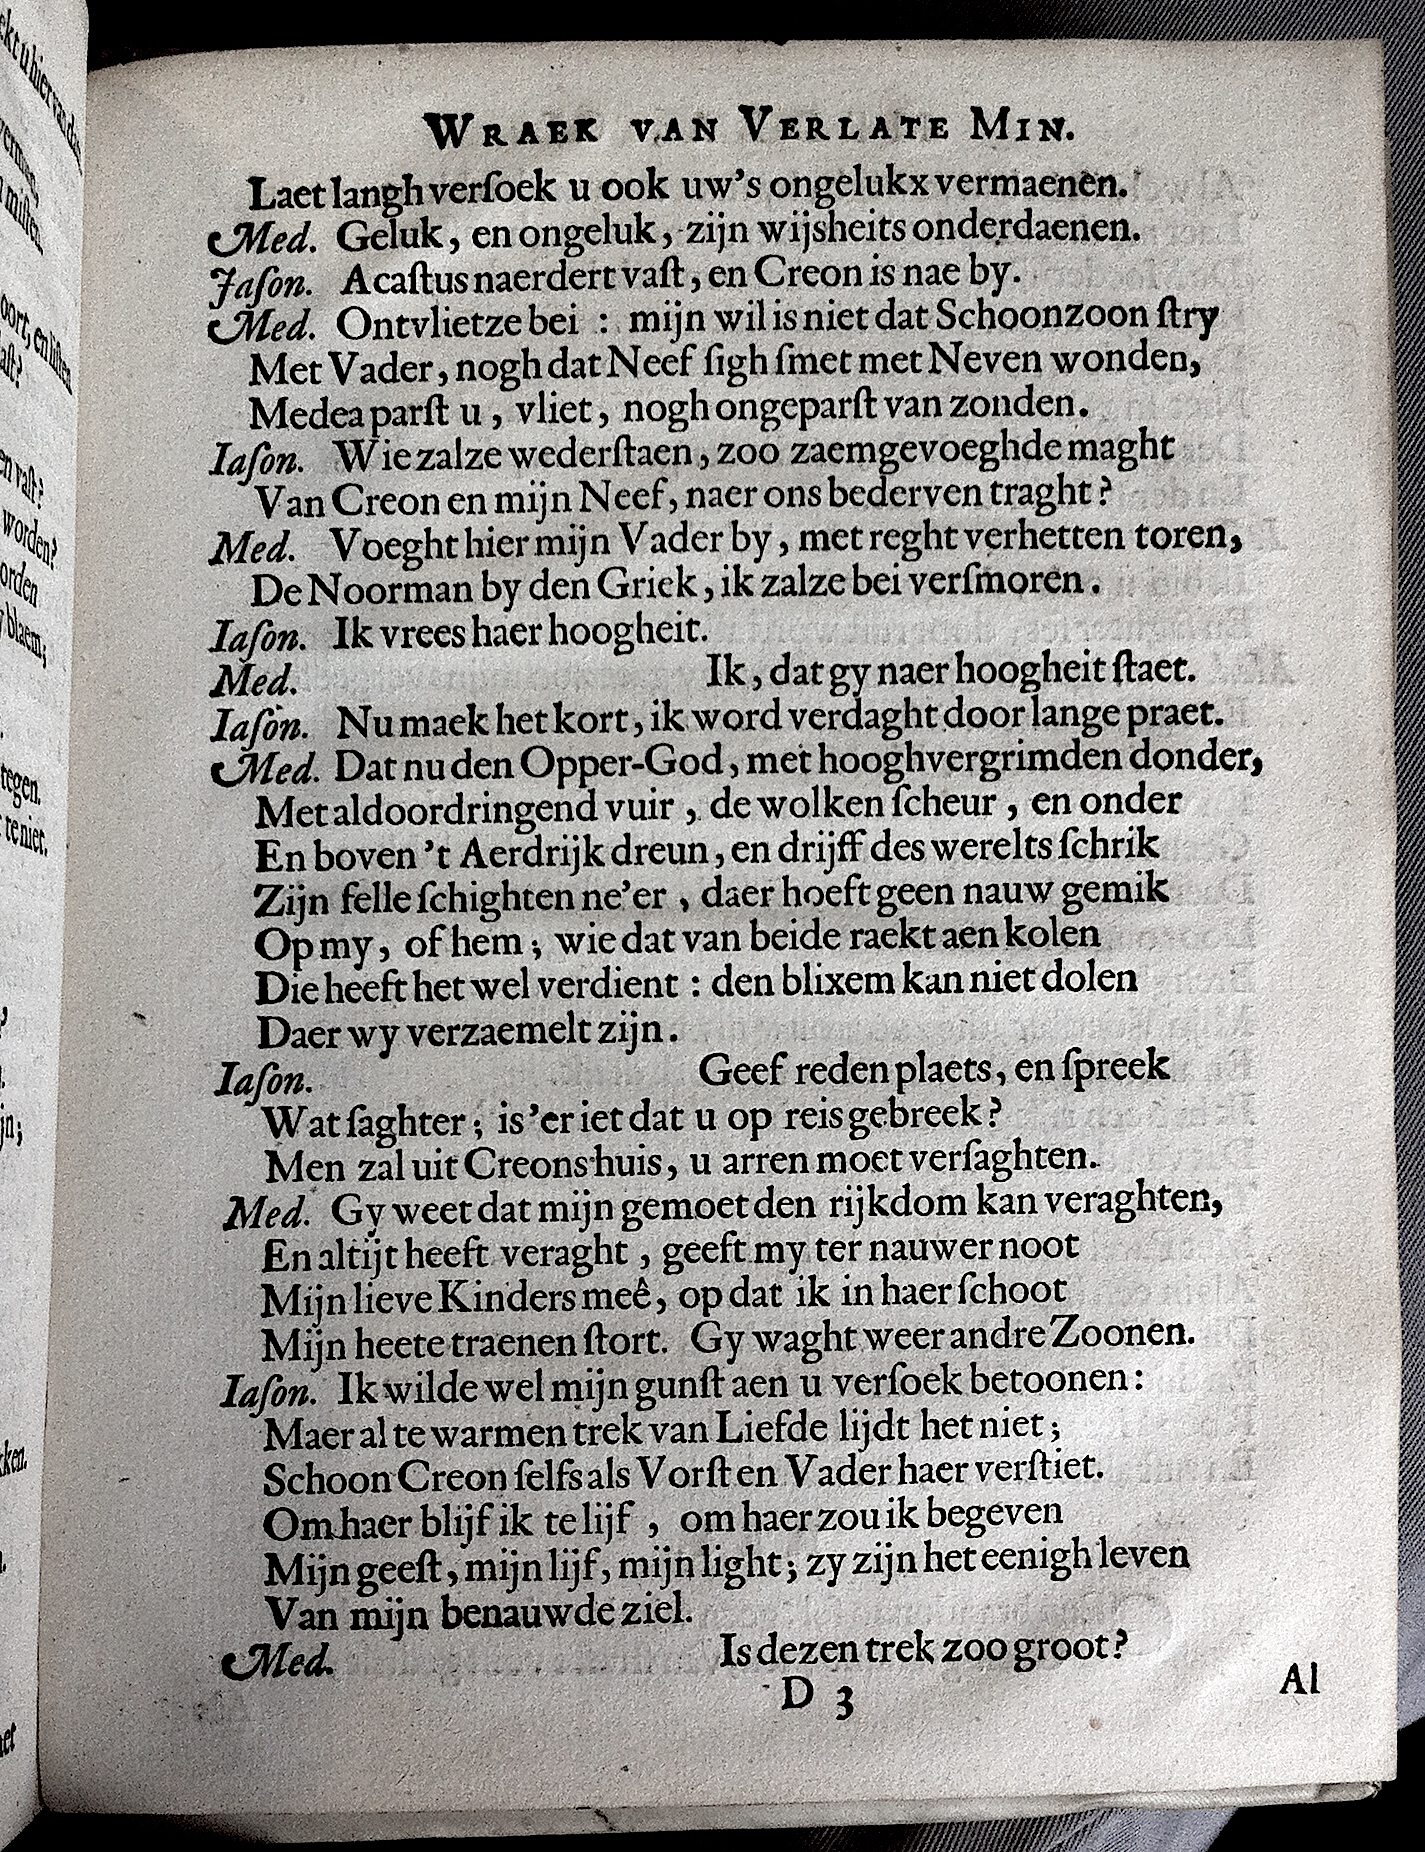 WRAEK VAN VERLATE MIN.
Laet langh verſoek u ook uw's ongelukx vermaenen.
Med. Geluk, en ongeluk, zijn wijsheits onderdaenen.
Jaſon. Acaſtus naerdert vaſt, en Creon is nae by.
Med. Ontvlietze bei : mijn wil is niet dat Schoonzoon ſtry
Met Vader, nogh dat Neef ſigh ſmet met Neven wonden,
Medea parſt u, vliet, nogh ongeparſt van zonden.
Iaſon. Wie zalze wederſtaen, zoo zaemgevoeghde maght
Van Creon en mijn Neef, naer ons bederven traght?
Med. Voeght hier mijn Vader by, met reght verhetten toren,
De Noorman by den Griek, ik zalze bei verſmoren.
Iaſon. Ik vrees haer hoogheit.
Med. Ik, dat gy naer hoogheit ſtaet.
Iaſon. Nu maek het kort, ik word verdaght door lange praet.
Med. Dat nu den Opper-God, met hooghvergrimden donder,
Met aldoordringend vuir, de wolken ſcheur, en onder
En boven 't Aerdrijk dreun, en drijff des werelts ſchrik
Zijn felle ſchighten ne'er, daer hoeft geen nauw gemik
Op my, of hem; wie dat van beide raekt aen kolen
Die heeft het wel verdient : den blixem kan niet dolen
Daer wy verzaemelt zijn.
Iaſon. Geef reden plaets, en ſpreek
Wat ſaghter; is 'er iet dat u op reis gebreek?
Men zal uit Creons huis, u arren moet verſaghten.
Med. Gy weet dat mijn gemoet den rijkdom kan veraghten,
En altijt heeft veraght, geeft my ter nauwer noot
Mijn lieve Kinders meê, op dat ik in haer ſchoot
Mijn heete traenen ſtort. Gy waght weer andre Zoonen.
Iaſon. Ik wilde wel mijn gunſt aen u verſoek betoonen:
Maer al te warmen trek van Liefde lijdt het niet;
Schoon Creon ſelfs als Vorſt en Vader haer verſtiet.
Om haer blijf ik te lijf, om haer zou ik begeven
Mijn geeſt, mijn lijf, mijn light; zy zijn het eenigh leven
Van mijn benauwde ziel.
Med. Is dezen trek zoo groot?
D 3 Al